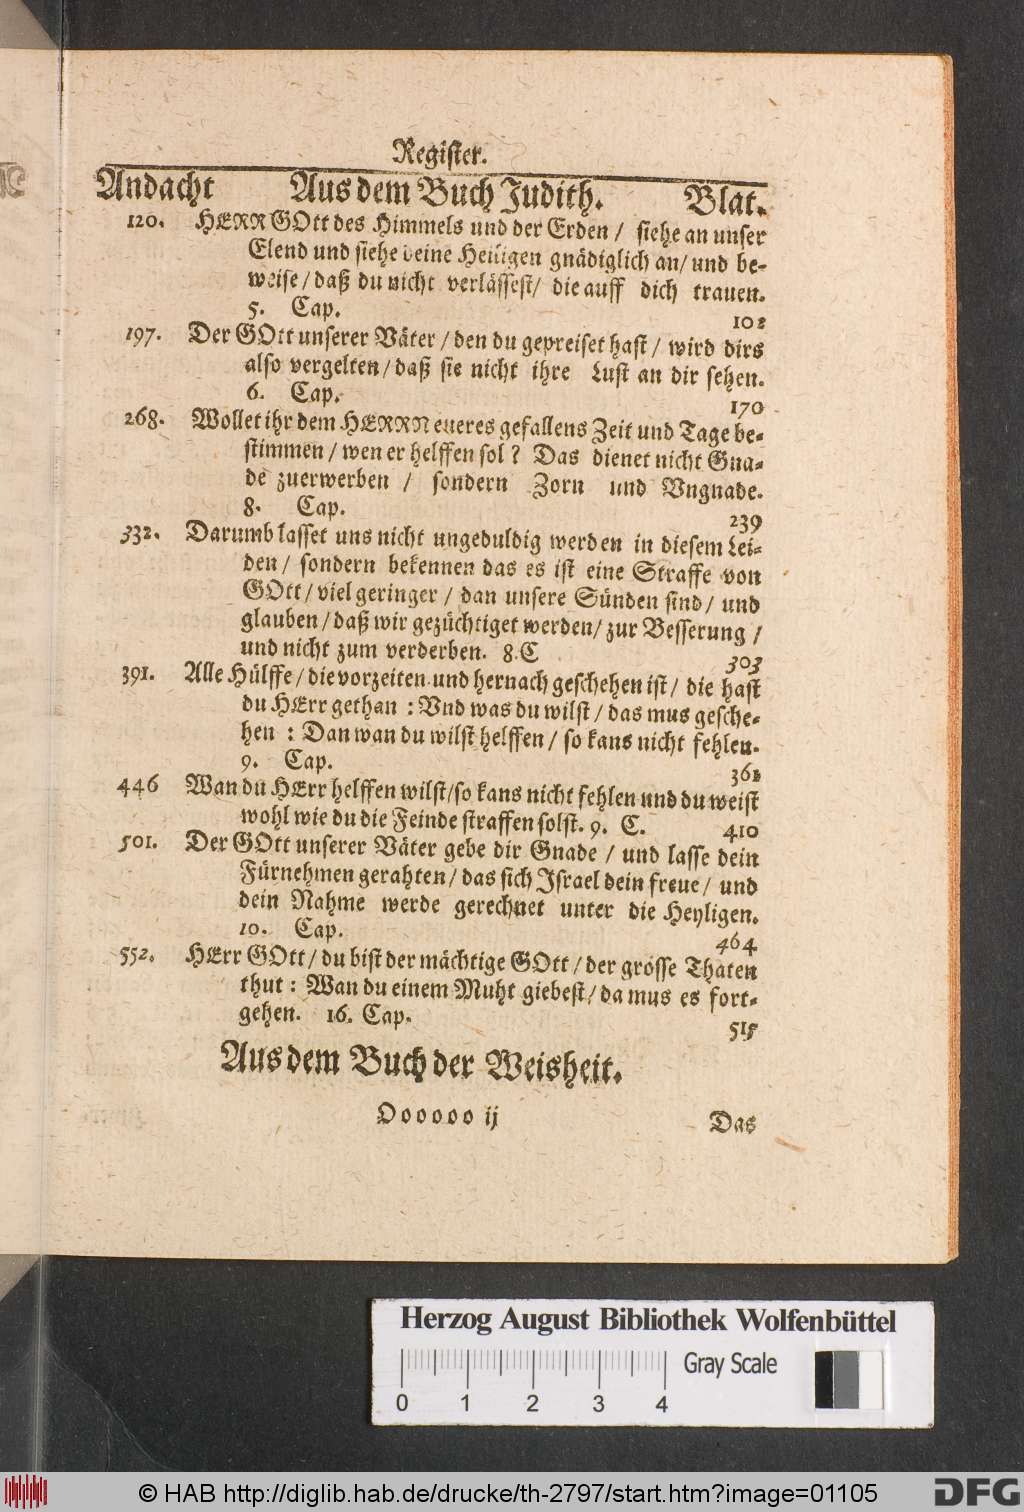 Register.
Andacht Aus dem Buch Judith. Blat.
120. HERR GOtt des Himmels und der Erden / siehe an unser
Elend und siehe deine Heiligen gnädiglich an / und be-
weise / daß du nicht verlässest / die auff dich trauen.
5. Cap. 102
197. Der GOtt unserer Väter / den du gepreiset hast / wird dirs
also vergelten / daß sie nicht ihre Lust an dir sehen.
6. Cap. 170
268. Wollet ihr dem HERRN eueres gefallens Zeit und Tage be-
stimmen / wen er helffen sol? Das dienet nicht Gna-
de zuerwerben / sondern Zorn und Vngnade.
8. Cap. 239
332. Darumb lasset uns nicht ungeduldig werden in diesem Lei-
den / sondern bekennen das es ist eine Straffe von
GOtt / viel geringer / dan unsere Sünden sind / und
glauben / daß wir gezüchtiget werden / zur Besserung /
und nicht zum verderben. 8. C 303
391. Alle Hülffe / die vorzeiten und hernach geschehen ist / die hast
du HErr gethan : Vnd was du wilst / das mus gesche-
hen : Dan wan du wilst helffen / so kans nicht fehlen.
9. Cap. 361
446 Wan du HErr helffen wilst / so kans nicht fehlen und du weist
wohl wie du die Feinde straffen solst. 9. C. 410
501. Der GOtt unserer Väter gebe dir Gnade / und lasse dein
Fürnehmen gerahten / das sich Israel dein freue / und
dein Nahme werde gerechnet unter die Heyligen.
10. Cap. 464
552. HErr GOtt / du bist der mächtige GOtt / der grosse Thaten
thut : Wan du einem Muht giebest / da mus es fort-
gehen. 16. Cap. 515
Aus dem Buch der Weisheit.
Oooooo ij Das
Herzog August Bibliothek Wolfenbüttel
Gray Scale
0 1 2 3 4
© HAB http://diglib.hab.de/drucke/th-2797/start.htm?image=01105
DFG